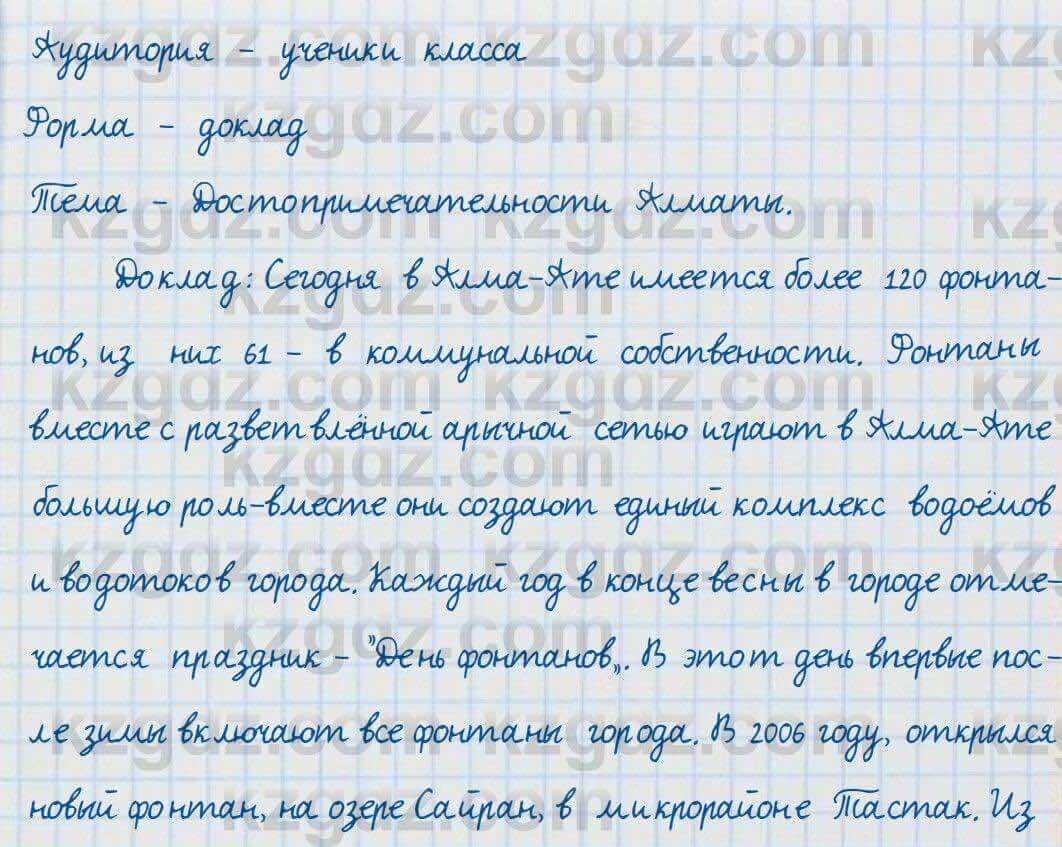 Аудитория - ученики класса
Форма - доклад
Тема - Достопримечательности Алматы.
Доклад: Сегодня в Алма-Ате имеется более 120 фонта-
нов, из них 61 - в коммунальной собственности. Фонтаны
вместе с разветвлённой арычной сетью играют в Алма-Ате
большую роль-вместе они создают единый комплекс водоёмов
и водотоков города. Каждый год в конце весны в городе отме-
чается праздник - "День фонтанов„. В этот день впервые пос-
ле зимы включают все фонтаны города. В 2006 году, открылся
новый фонтан, на озере Сайран, в микрорайоне Тастак. Из
kzgdz.com